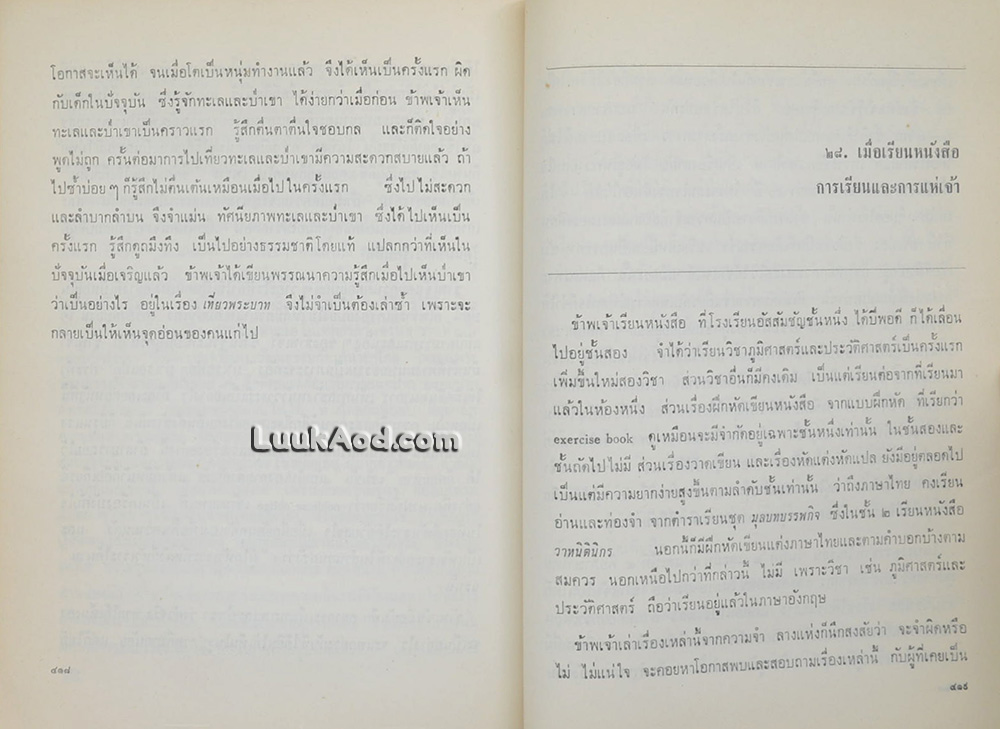 โอกาสจะเห็นได้ จนเมื่อโตเป็นหนุ่มทำงานแล้ว จึงได้เห็นเป็นครั้งแรก ผิด
กับเด็กในปัจจุบัน ซึ่งรู้จักทะเลและป่าเขา ได้ง่ายกว่าเมื่อก่อน ข้าพเจ้าเห็น
ทะเลและป่าเขาเป็นคราวแรก รู้สึกตื่นตาตื่นใจชอบกล และก็ติดใจอย่าง
พูดไม่ถูก ครั้นต่อมาการไปเที่ยวทะเลและป่าเขามีความสะดวกสบายแล้ว ถ้า
ไปซ้ำบ่อย ๆ ก็รู้สึกไม่ตื่นเต้นเหมือนเมื่อไปในครั้งแรก ซึ่งไปไม่สะดวก
และลำบากลำบน จึงจำแม่น ทัศนียภาพทะเลและป่าเขา ซึ่งได้ไปเห็นเป็น
ครั้งแรก รู้สึกดูถมึงทึง เป็นไปอย่างธรรมชาติโดยแท้ แปลกกว่าที่เห็นใน
ปัจจุบันเมื่อเจริญแล้ว ข้าพเจ้าได้เขียนพรรณนาความรู้สึกเมื่อไปเห็นป่าเขา
ว่าเป็นอย่างไร อยู่ในเรื่อง เที่ยวพระบาท จึงไม่จำเป็นต้องเล่าซ้ำ เพราะจะ
กลายเป็นให้เห็นจุดอ่อนของคนแก่ไป
LuukAod.com
๔๑๘
๒๘. เมื่อเรียนหนังสือ
การเรียนและการแห่เจ้า
ข้าพเจ้าเรียนหนังสือ ที่โรงเรียนอัสสัมชัญชั้นหนึ่ง ได้ปีพอดี ก็ได้เลื่อน
ไปอยู่ชั้นสอง จำได้ว่าเรียนวิชาภูมิศาสตร์และประวัติศาสตร์เป็นครั้งแรก
เพิ่มขึ้นใหม่สองวิชา ส่วนวิชาอื่นก็มีคงเดิม เป็นแต่เรียนต่อจากที่เรียนมา
แล้วในห้องหนึ่ง ส่วนเรื่องฝึกหัดเขียนหนังสือ จากแบบฝึกหัด ที่เรียกว่า
exercise book ดูเหมือนจะมีจำกัดอยู่เฉพาะชั้นหนึ่งเท่านั้น ในชั้นสองและ
ชั้นถัดไปไม่มี ส่วนเรื่องวาดเขียน และเรื่องหัดแต่งหัดแปล ยังมีอยู่ตลอดไป
เป็นแต่มีความยากง่ายสูงขึ้นตามลำดับชั้นเท่านั้น ว่าถึงภาษาไทย คงเรียน
อ่านและท่องจำ จากตำราเรียนชุด มูลบทบรรพกิจ ซึ่งในชั้น ๒ เรียนหนังสือ
วาหนิติ์นิกร นอกนี้ก็มีฝึกหัดเขียนแต่งภาษาไทยและตามคำบอกบ้างตาม
สมควร นอกเหนือไปกว่าที่กล่าวนี้ ไม่มี เพราะวิชา เช่น ภูมิศาสตร์และ
ประวัติศาสตร์ ถือว่าเรียนอยู่แล้วในภาษาอังกฤษ
ข้าพเจ้าเล่าเรื่องเหล่านี้จากความจำ ลางแห่งก็นึกสงสัยว่า จะจำผิดหรือ
ไม่ ไม่แน่ใจ จะคอยหาโอกาสพบและสอบถามเรื่องเหล่านี้ กับผู้ที่เคยเป็น
๔๑๙